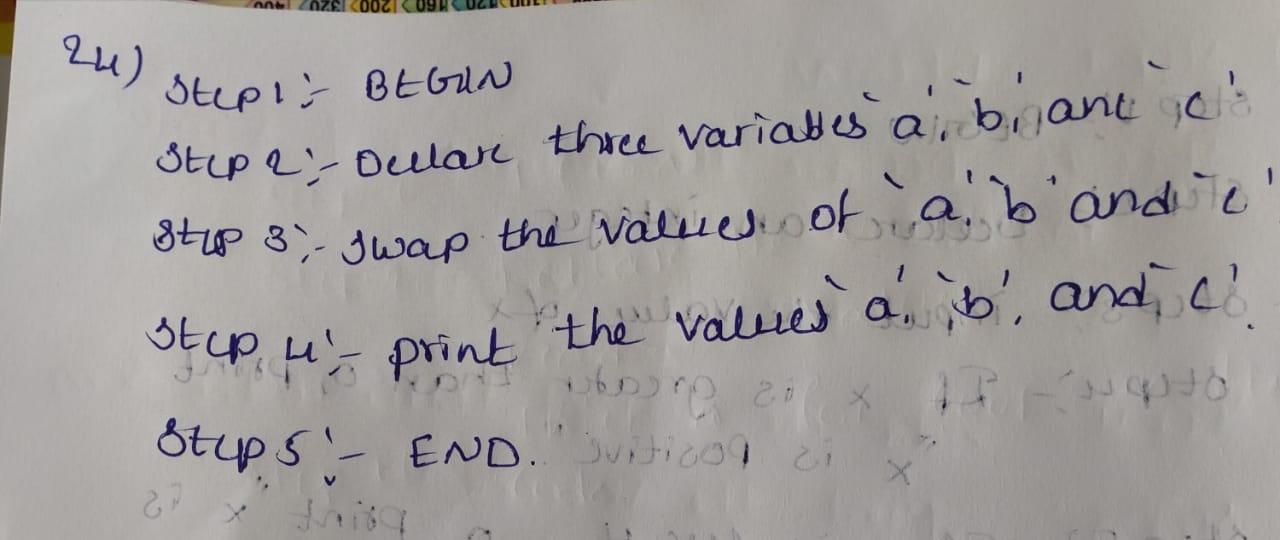 24)
Step 1 :- BEGIN
Step 2 :- Declare three variables `a', `b', and `c'
Step 3 :- Swap the values of `a', `b' and `c'
Step 4 :- print the values `a', `b', and `c'.
Step 5 :- END.